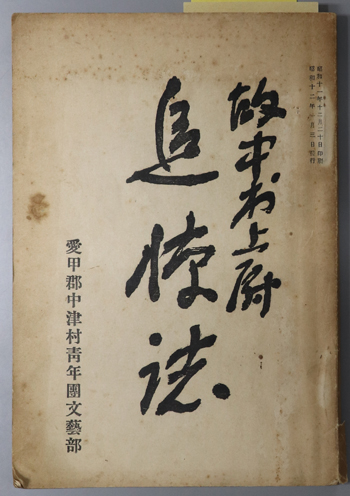 昭和十一年十二月二十日印刷
昭和十二年一月三日發行
故中村上尉
追悼誌
愛甲郡中津村靑年團文藝部